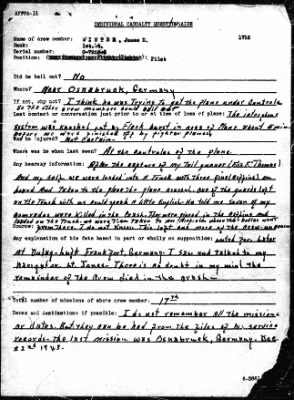 AFPPA-11
INDIVIDUAL CASUALTY QUESTIONNAIRE
Name of crew member: WINTER, James E. 1752
Rank: 1st. Lt.
Serial number:
Position: Pilot
Did he bail out? No
Where? Near Osnabruck, Germany
If not, why not? I think he was Trying To get the plane under Controle
So the other crew members could bail out
Last contact or conversation just prior to at time of loss of plane: The interphone
System was knocked out by Flack burst in nose of Plane about
before we were finished off by fighter planes
Was he injured? Not Certain.
Where was he when last seen? At the controles of the plane.
Any hearsay information: After the capture of my Tail gunner
And my self we were loaded into a Truck with three pine coffins on
board and Taken to the place the plane crashed. one of the guards left
on the Truck with us could speak a little English. He told me seven of my
comrades were killed in the crash. They were placed in the coffins and
loaded on the Truck. we were then Taken to
Source: from There I do not Know.
Any explanation of his fate based in part or wholly on supposition:
At Dulag-luft Frankfort, Germany. I saw and talked to my
Navigator Lt. Jones. There is no doubt in my mind the
remainder of the Crew died in the crash.
Total number of missions of above crew member: 17th
Dates and destinations if possible: I do not remember all the missions
or dates. But they can be had from the files of his service
records. The last mission was Osnabruck, Germany. Dec
22nd 1943.